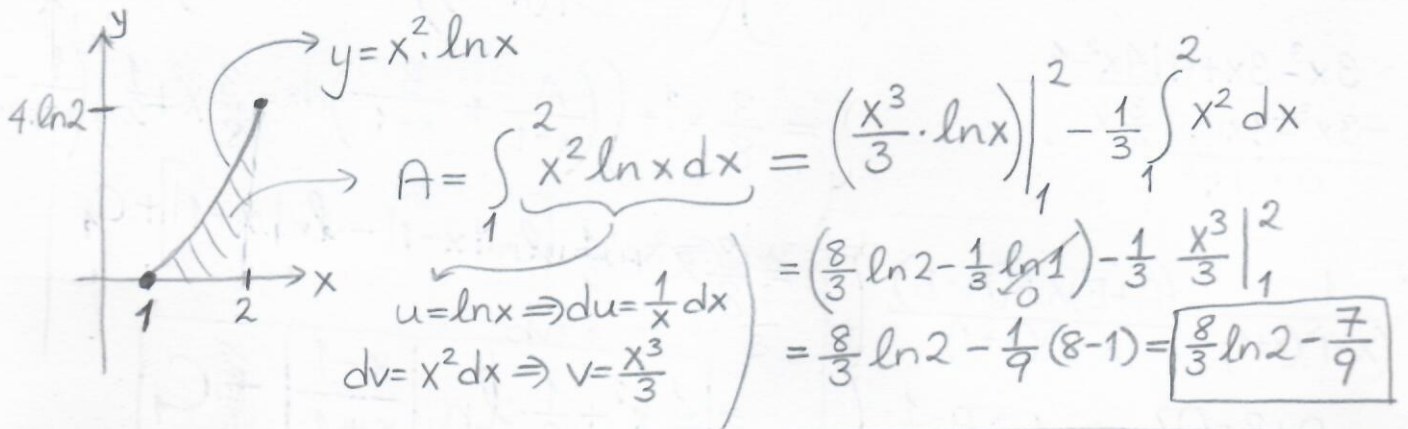 y
y = x²·lnx
4·ln2
x
1
2
A = ∫₁² x² ln x dx = (x³/3 · lnx)|₁² - 1/3 ∫₁² x² dx
u = lnx ⇒ du = 1/x dx
dv = x² dx ⇒ v = x³/3
= (8/3 ln2 - 1/3 ln1) - 1/3 x³/3 |₁²
=0
= 8/3 ln2 - 1/9 (8-1) = 8/3 ln2 - 7/9